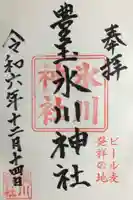 奉拝
豊玉氷川神社
氷川
神社
ビール麦
発祥の地
令和六年十二月十四日